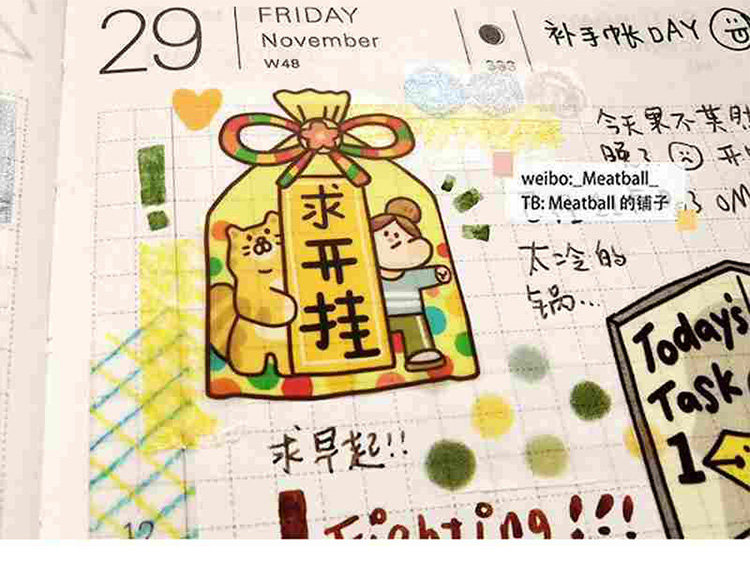 29
FRIDAY
November
W48
333
补手帐DAY
今天果不其然
晚了
weibo:_Meatball_
TB: Meatball 的铺子
太冷的
锅...
求
开
挂
Today's
Task
1
求早起!!
Fighting!!!
12